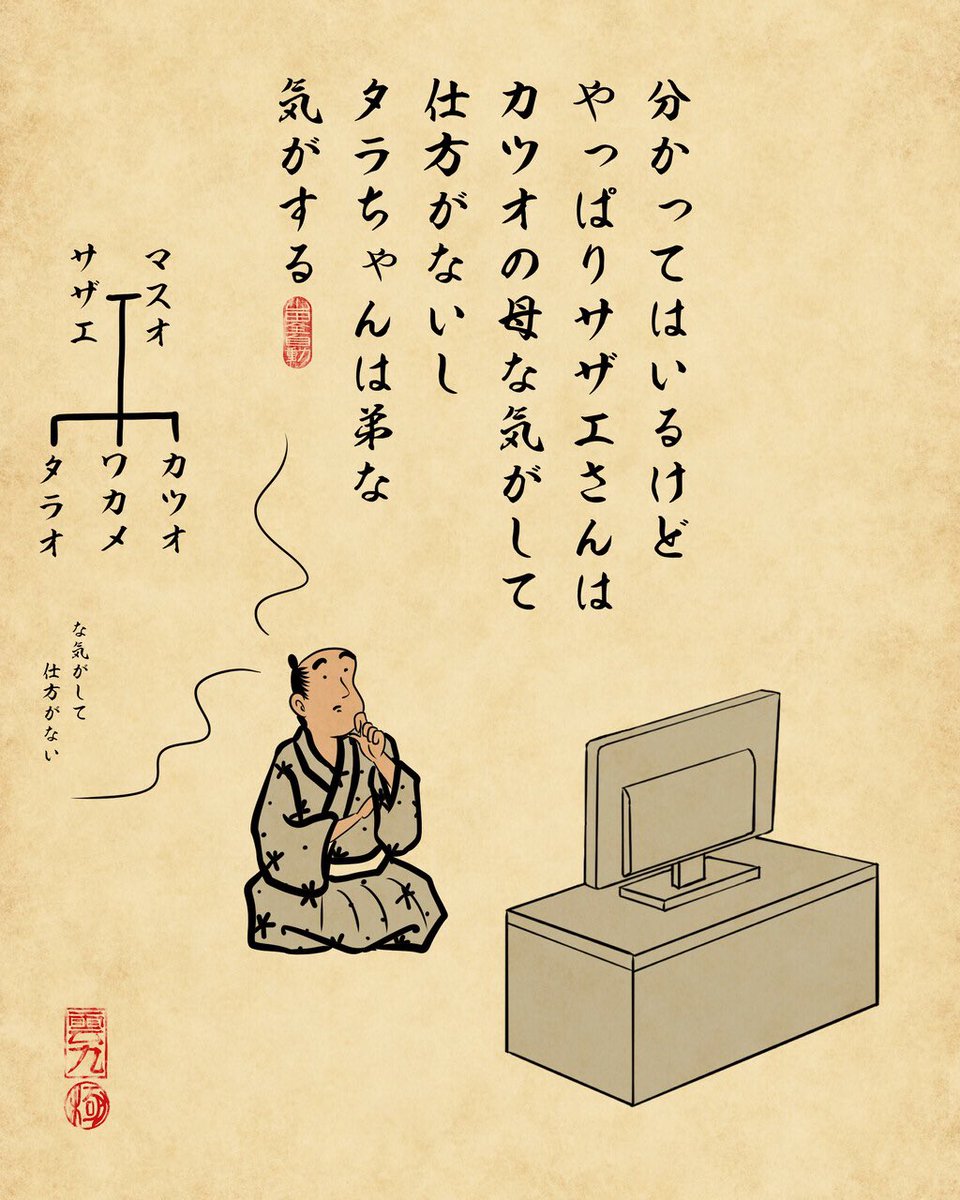 分かってはいるけど
やっぱりサザエさんは
カツオの母な気がして
仕方がないし
タラちゃんは弟な
気がする
マスオ
サザエ
カツオ
ワカメ
タラオ
な気がして
仕方がない